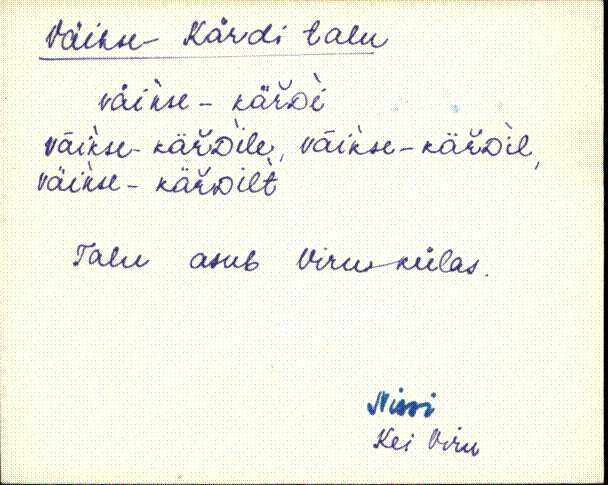 Väikse-Kärdi talu
väi̇̀kse-käř̆Dì
väi̇̀kse-käřDìle, väi̇̀kse-käřDìl,
väi̇̀kse-käřDìlt
Talu asub Viru külas.
Nissi
Kei Viru